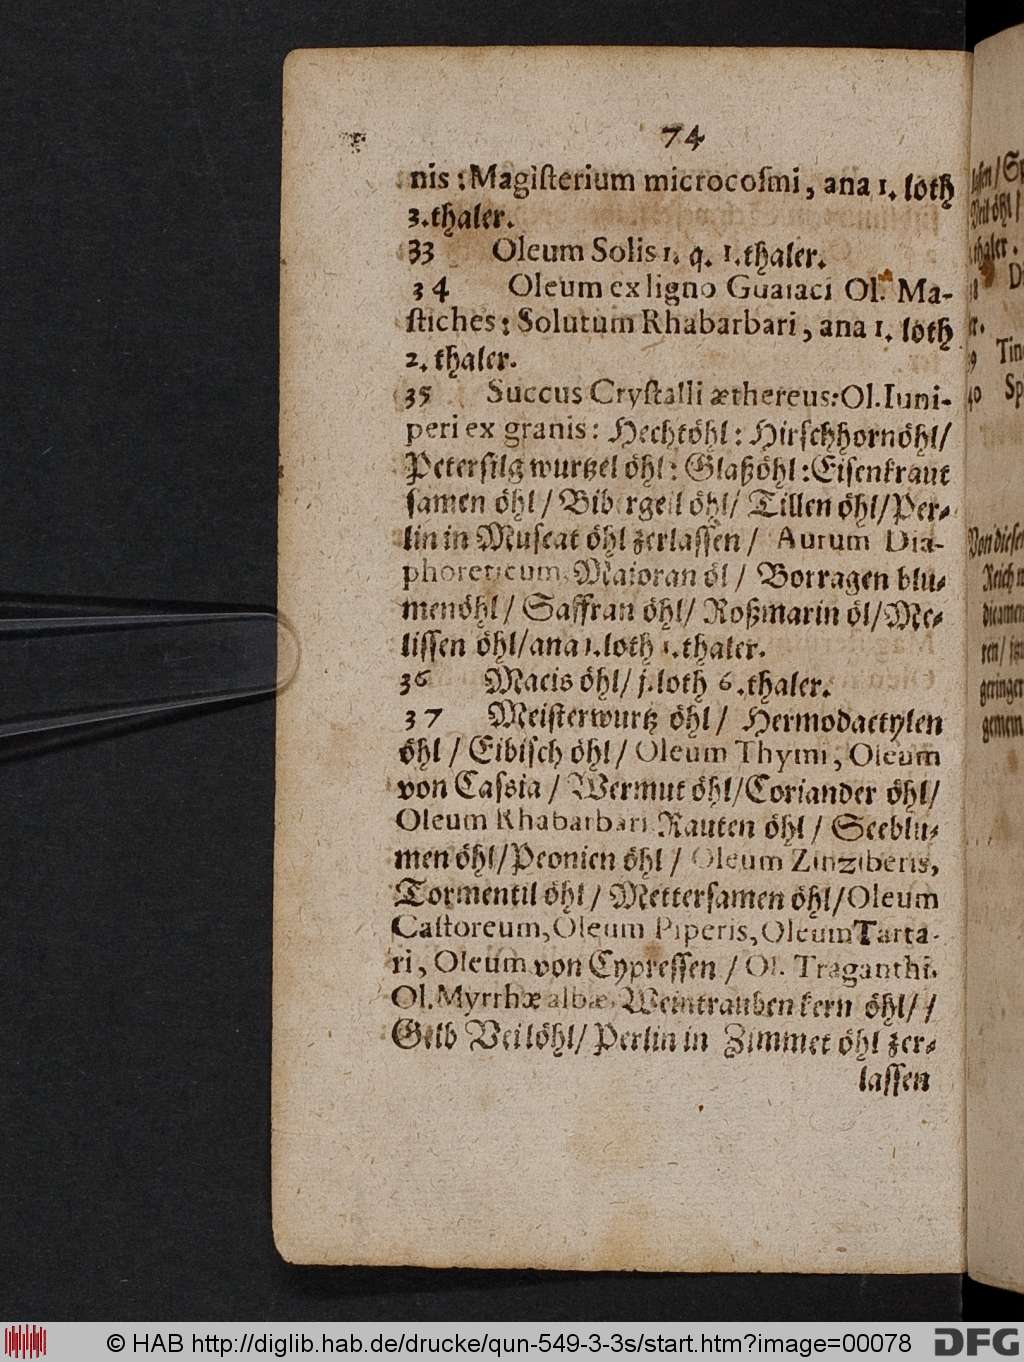 74
nis : Magiſterium microcoſmi, ana 1. loth
3. thaler.
33 Oleum Solis 1. q. 1. thaler.
34 Oleum ex ligno Guaiaci Ol. Ma-
ſtiches: Solutum Rhabarbari, ana 1. loth
2. thaler.
35 Succus Cryſtalli æthereus: Ol. Iuni-
peri ex granis: Hechtöhl: Hirſchhornöhl/
Peterſilg wurtzel öhl: Glaßöhl: Eiſenkraut
ſamen öhl / Bibergeil öhl/ Tillen öhl/Per-
lin in Muſcat öhl zerlaſſen / Aurum Dia-
phoreticum, Maioran öl / Borragen blu-
menöhl / Saffran öhl/ Roßmarin öl/Me-
liſſen öhl/ana 1. loth 1. thaler.
36 Macis öhl/ j. loth 6. thaler.
37 Meiſterwurtz öhl / Hermodactylen
öhl / Eibiſch öhl / Oleum Thymi, Oleum
von Caſsia / Wermut öhl/Coriander öhl/
Oleum Rhabarbari Rauten öhl / Seeblu-
men öhl/Peonien öhl / Oleum Zinziberis,
Tormentil öhl / Metterſamen öhl/Oleum
Caſtoreum, Oleum Piperis, Oleum Tarta-
ri, Oleum von Cypreſſen / Ol. Traganthi.
Ol. Myrrhæ albæ, Weintrauben kern öhl/ /
Gelb Veilöhl/ Perlin in Zimmet öhl zer-
laſſen
© HAB http://diglib.hab.de/drucke/qun-549-3-3s/start.htm?image=00078
DFG